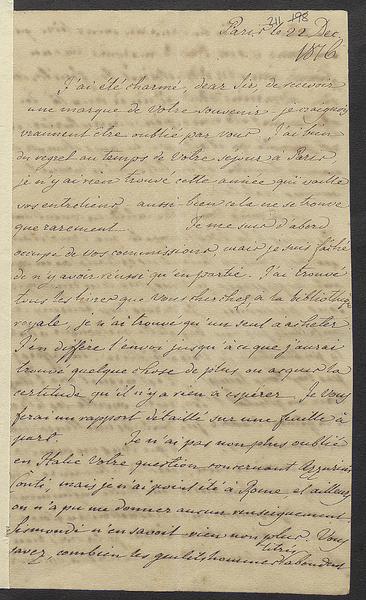 211 198
Paris le 22 Dec.
1816
J'ai été charmé, dear Sir, de recevoir
une marque de votre souvenir je craignois
vraiment être oublié par vous. J'ai bien
du regret au temps de votre sejour à Paris,
je n'y ai rien trouvé cette année qui vaille
vos entretiens aussi bien cela ne se trouve
que rarement. Je me suis d'abord
occupé de vos commissions, mais je suis fâché
de n'y avoir réussi qu'en partie. J'ai trouvé
tous les livres que vous cherchez, à la bibliothèque
royale, je n'ai trouvé qu'un seul à acheter
J'en diffère l'envoi jusqu'à ce que j'aurai
trouvé quelque chose de plus ou acquis la
certitude qu'il n'y a rien à espérer. Je vous
ferai un rapport détaillé sur une feuille à
part. Je n'ai pas non plus oublié
en Italie votre question concernant
Conti, mais je n'ai point été à Rome, d'ailleurs
on n'a pu me donner aucun renseignement
Sismondi n'en savoit rien non plus. Vous
savez, combien les gentilshommes titrés abondent